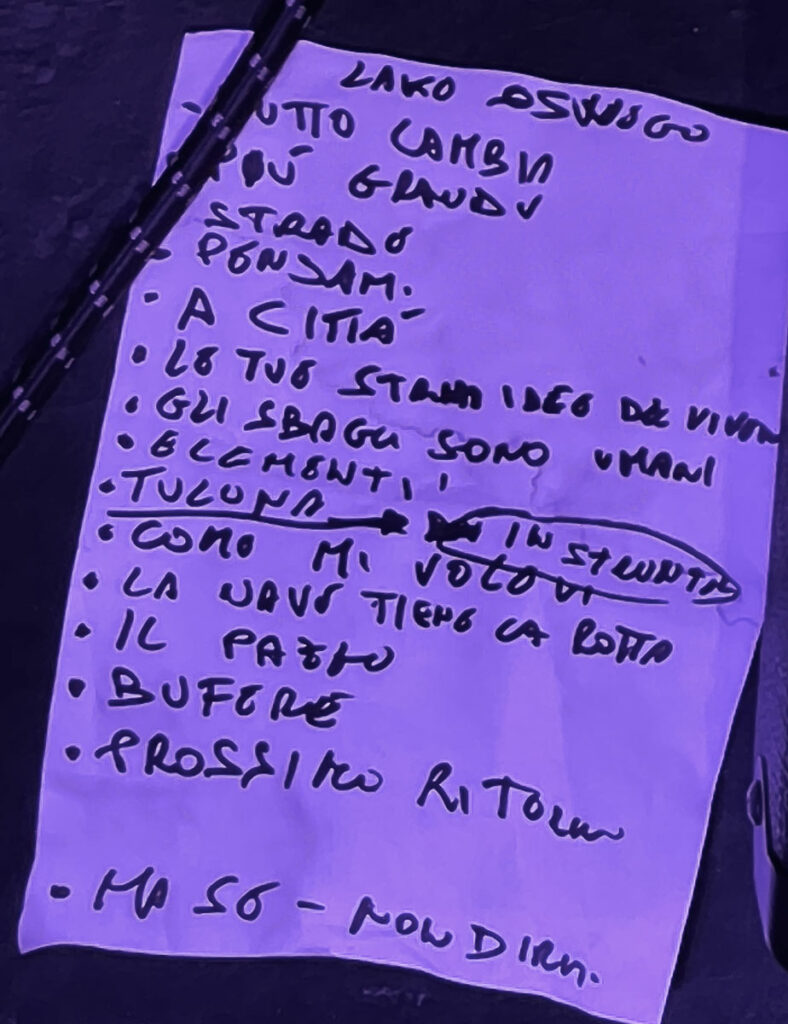 LAKO OSWEGO
- TUTTO CAMBIA
PIÚ GRANDI
STRADE
- PENSAM.
• A CITTÀ
• LE TUE STRANE IDEE DI VIVERE
• GLI SBAGLI SONO UMANI
• ELEMENTI
• TULUNA → IN STRUNTA
• COME MI VOLEVI
• LA NAVE TIENE LA ROTTA
• IL PAZZO
• BUFERE
• PROSSIMO RITORNO
• MA SE - NON DIRM.